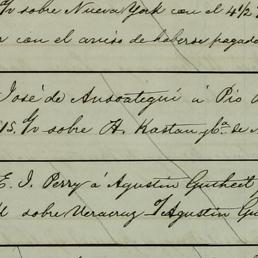 sobre Nueva York con el 4½
con el aviso de haberse pagado
José de Ansoategui á Pio
15. G/v sobre H. Kastan y Ca. de
E. I. Perry á Agustin Guiheet
sobre Veracruz o/ Agustin Gui